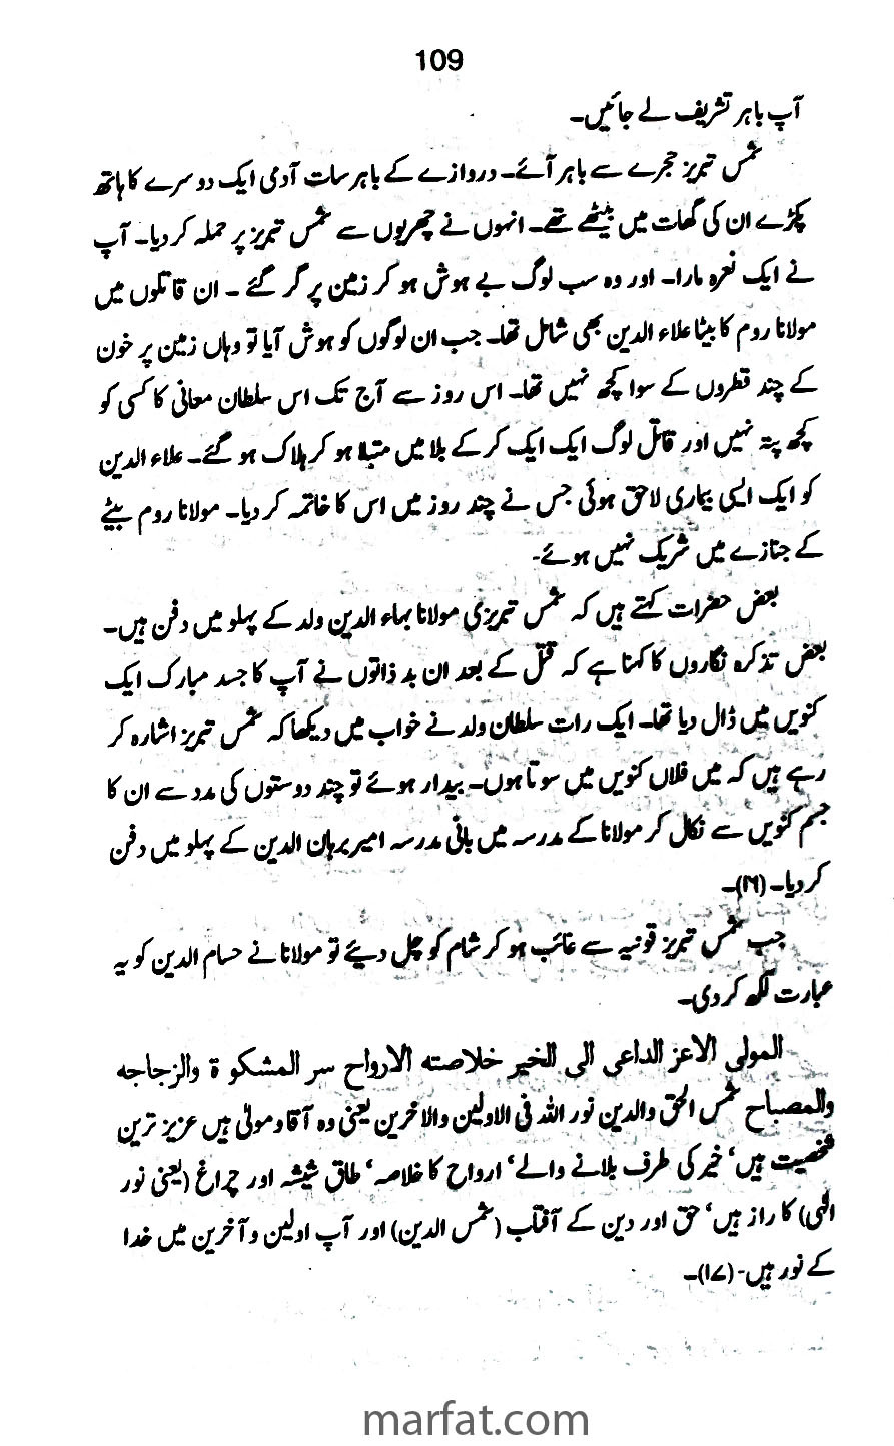 109
آپ باہر تشریف لے جائیں۔
شمس تبریز حجرے سے باہر آئے۔ دروازے کے باہر سات آدمی ایک دوسرے کا ہاتھ
پکڑے ان کی گھات میں بیٹھے تھے۔ انہوں نے چھریوں سے شمس تبریز پر حملہ کر دیا۔ آپ
نے ایک نعرہ مارا۔ اور وہ سب لوگ بے ہوش ہو کر زمین پر گر گئے ۔ ان قاتلوں میں
مولانا روم کا بیٹا علاء الدین بھی شامل تھا۔ جب ان لوگوں کو ہوش آیا تو وہاں زمین پر خون
کے چند قطروں کے سوا کچھ نہیں تھا۔ اس روز سے آج تک اس سلطان معانی کا کسی کو
کچھ پتہ نہیں اور قاتل لوگ ایک ایک کر کے بلا میں مبتلا ہو کر ہلاک ہو گئے۔ علاء الدین
کو ایک ایسی بیماری لاحق ہوئی جس نے چند روز میں اس کا خاتمہ کر دیا۔ مولانا روم بیٹے
کے جنازے میں شریک نہیں ہوئے۔
بعض حضرات کہتے ہیں کہ شمس تبریزی مولانا بہاء الدین ولد کے پہلو میں دفن ہیں۔
بعض تذکرہ نگاروں کا کہنا ہے کہ قتل کے بعد ان بد ذاتوں نے آپ کا جسد مبارک ایک
کنویں میں ڈال دیا تھا۔ ایک رات سلطان ولد نے خواب میں دیکھا کہ شمس تبریز اشارہ کر
رہے ہیں کہ میں فلاں کنویں میں سوتا ہوں۔ بیدار ہوئے تو چند دوستوں کی مدد سے ان کا
جسم کنویں سے نکال کر مولانا کے مدرسہ میں بانی مدرسہ امیر برہان الدین کے پہلو میں دفن
کر دیا۔ (۱۶)۔
جب شمس تبریز قونیہ سے غائب ہو کر شام کو چل دیئے تو مولانا نے حسام الدین کو یہ
عبارت لکھ کر دی۔
المولی الاعز الداعی الی الخیر خلاصته الارواح سر المشکو ة والزجاجه
والمصباح شمس الحق والدین نور اللہ فی الاولین والاخرین یعنی وہ آقا و مولیٰ ہیں عزیز ترین
شخصیت ہیں، خیر کی طرف بلانے والے، ارواح کا خلاصہ، طاق شیشہ اور چراغ (یعنی نور
الٰہی) کا راز ہیں، حق اور دین کے آفتاب (شمس الدین) اور آپ اولین و آخرین میں خدا
کے نور ہیں۔ (۱۷)۔
marfat.com